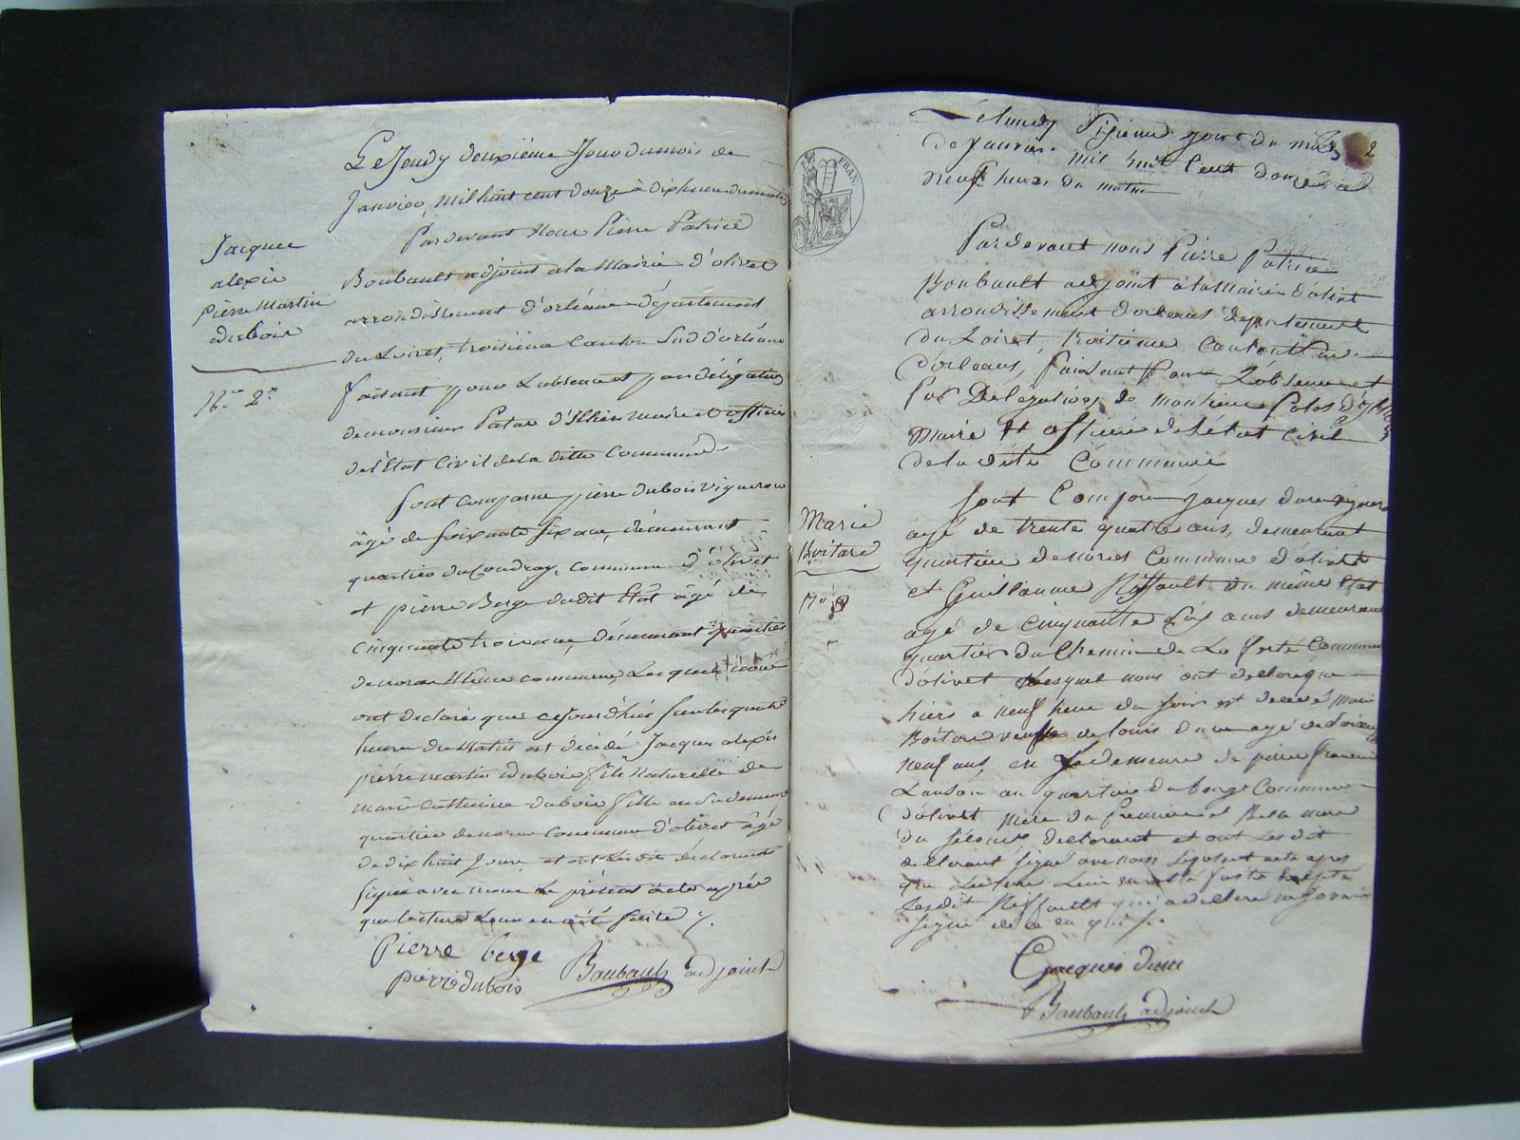 Jacques
alexis
pierre Martin
dubois
N.º 2.
Le Jeudy deuxiême Jour du mois de
Janvier, mil huit cent douze à dix heures du matin
Pardevant Nous Pierre Patrice
Boubault adjoint a la Mairie d'olivet
arrondissement d'orléans département
du Loiret, troisiême Canton Sud d'orléans
faisant pour L'absence et par délégation
de monsieur Patas d'Illiers maire et officier
de l'Etat Civil de la ditte Commune
Sont comparu pierre dubois vigneron
âgé de soixante six ans, démeurant
quartier du Coudray, commune d'olivet
et pierre Berge dudit Etat âgé de
cinquante trois ans, démeurant quartier
de noras Même commune, Lesquels nous
ont declaré que cejourd'hui sur les quatre
heures du Matin est décédé Jacques alexis
pierre martin dubois fils Naturelle de
marie Catherine dubois fille en sa demeure
quartier de noras commune d'olivet âgé
de dix huit Jours et ont Lesdits déclarants
signé avec nous Le présent acte après
que lecture Leur en a été faite /.
Pierre berge
pierre dubois Boubault adjoint
2
Le lundy Sixieme jour du mois
de Janvier mil huit Cent douze à
neuf heures du matin
Pardevant nous Pierre Patrice
Boubault adjoint à la Mairie d'olivet
arrondissement d'orleans departement
du Loiret, troisieme Canton Sud
d'orleans, faisant Pour L'absence et
Par Délégation de monsieur Patas d'illiers
Maire et officier de l'état Civil
de la dite Commune
Marie
Boitard
N.º 3
Sont Comparu Jacques dure vigneron
agé de trente quatre ans, demeurant
quartier de noras Commune d'olivet
et Guillaume Riffault du même Etat
agé de cinquante Six ans demeurant
quartier du Chemin de La ferté Commune
d'olivet Lesquel nous ont déclaré que
hiers a neuf heure du soir est decedé Marie
Boitard veuve de louis dure agé de soixante
neuf ans, en sa demeure de pierre francois
Lanson au quartier du bourg Commune
d'olivet mere du premier et Belle mere
du second declarant et ont Les dit
declarant signé avec nous le present acte apres
que Lecture Leur en a été faite excepté
Ledit Riffault qui a declaré ne savoir
signé de ce en quis /.
Jacques dure
Boubault adjoint